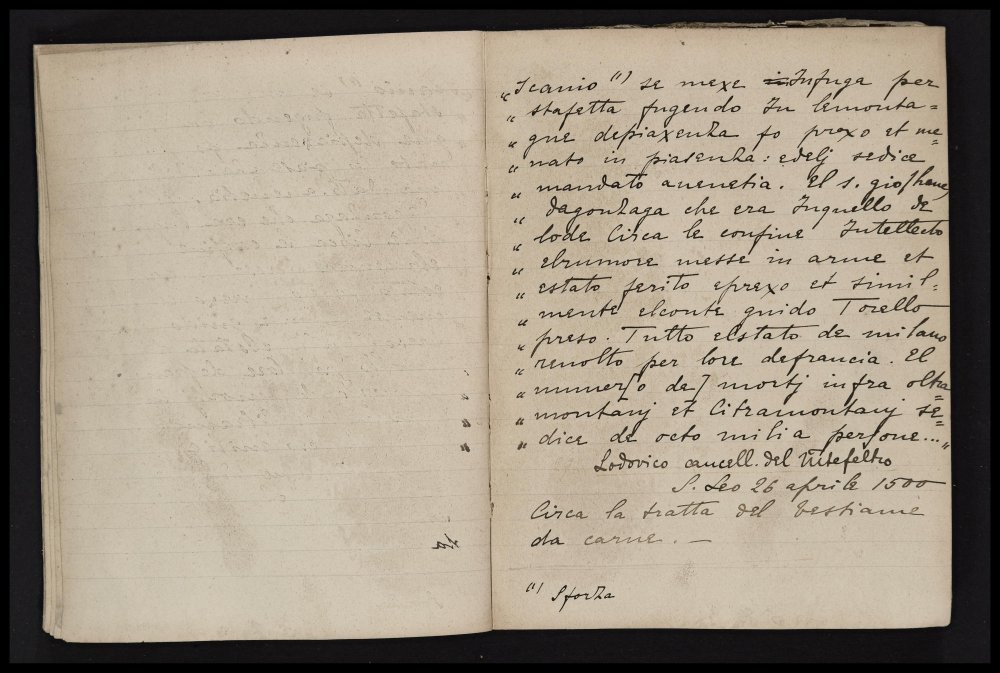 „ Scanio (1) se mexe in Infuga per
„ stafetta fugendo In lemonta=
„ gne depiaxenza fo prexo et me=
„ nato in piasenza: edelj sedice
„ mandato auenetia. El s. gio[hane]
„ dagonzaga che era Inquello de
„ lode Circa le confine Intellecto
„ elrumore messe in arme et
„ estato ferito eprexo et simil=
„ mente elconte guido Torello
„ preso. Tutto elstato de milano
„ reuolto per lore defrancia. El
„ numer[o de] mortj infra oltra
„ montanj et Citramontanj se=
„ dice de octo milia persone..."
Lodovico cancell. del
S. Leo 26 aprile 1500
Circa la tratta del bestiame
da carne. —
(1) Sforza